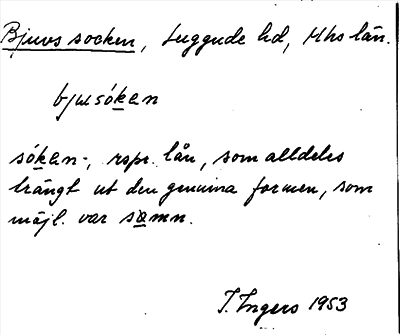 Bjuvs socken, Luggude hd, Mhs län.
bjusóken
sóken-, rspr. lån, som alldeles
trängt ut den genuina formen, som
möjl. var samn.
I. Ingers 1953